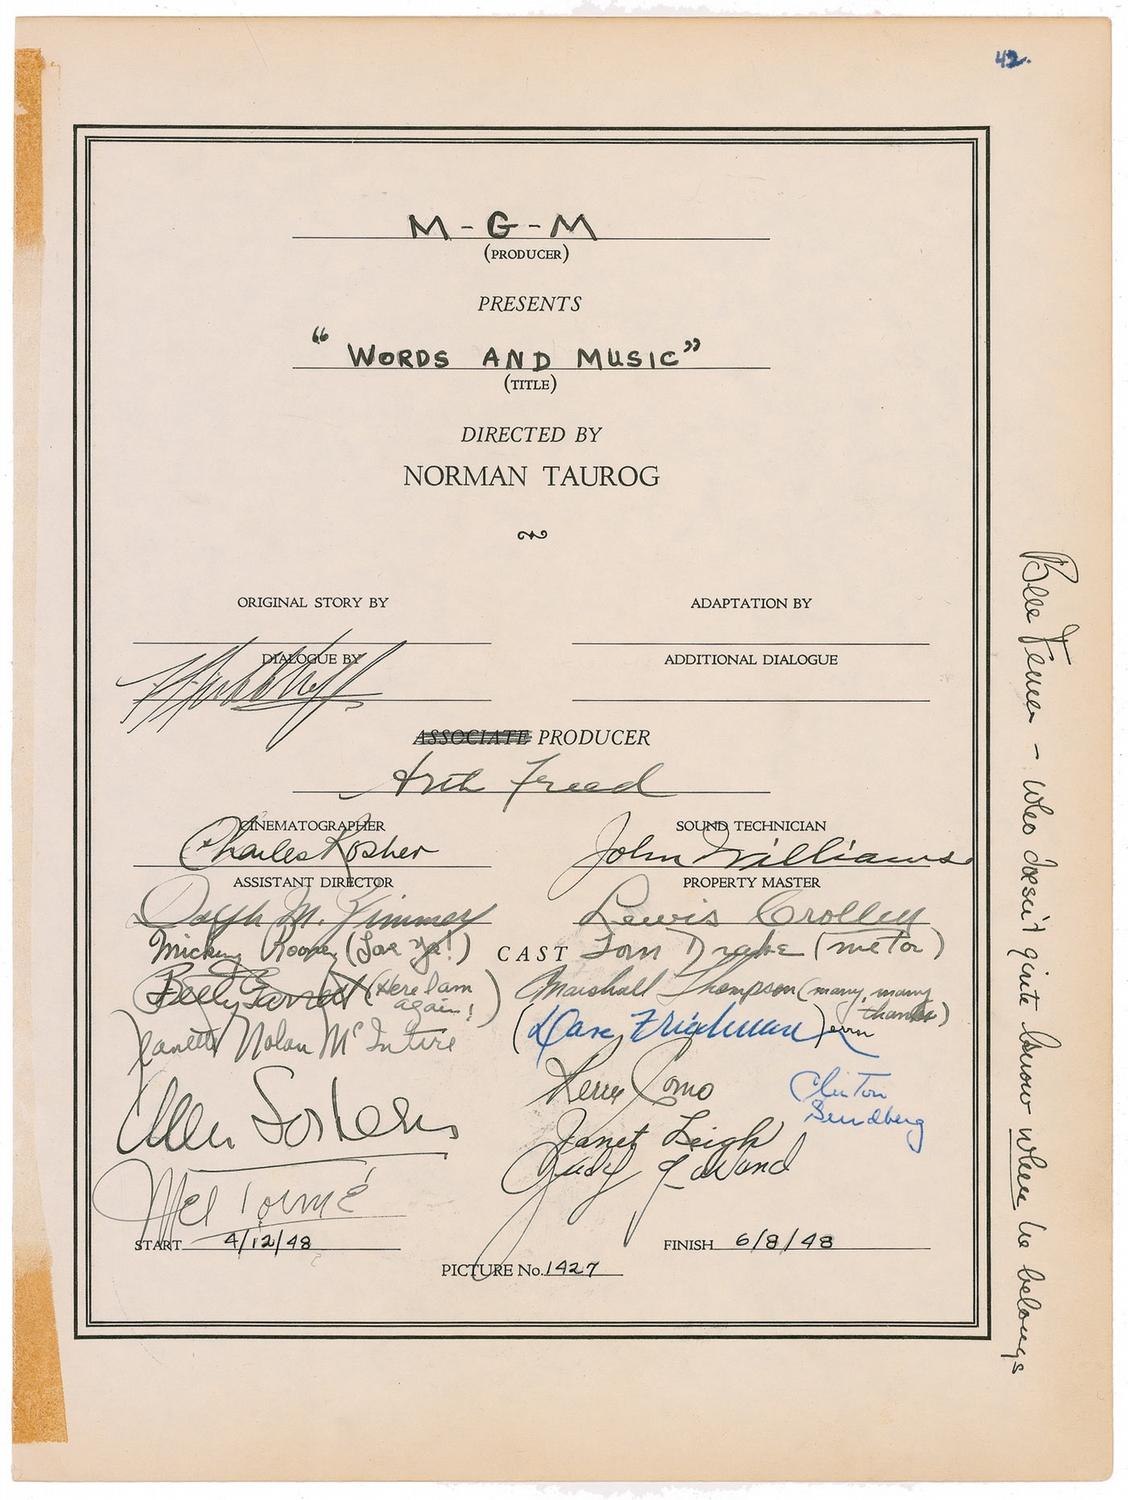 42.
M-G-M
(PRODUCER)
PRESENTS
"WORDS AND MUSIC"
(TITLE)
DIRECTED BY
NORMAN TAUROG
ORIGINAL STORY BY
ADAPTATION BY
DIALOGUE BY
ADDITIONAL DIALOGUE
ASSOCIATE PRODUCER
Arth Freed
CINEMATOGRAPHER
SOUND TECHNICIAN
Charles Rosher
John Williams
ASSISTANT DIRECTOR
PROPERTY MASTER
Lewis Crolley
Mickey Rooney (Love Ya!)
CAST
Tom Drake (metoo)
Betty Garrett (Here I am again!)
Marshall Thompson (many, many thanks)
Jeanette Nolan McIntire
Perry Como
Clinton
Sundberg
Janet Leigh
Judy Garland
Mel Tormé
START 4/12/48
FINISH 6/8/48
PICTURE No. 1427
- who doesn't quite know where he belongs